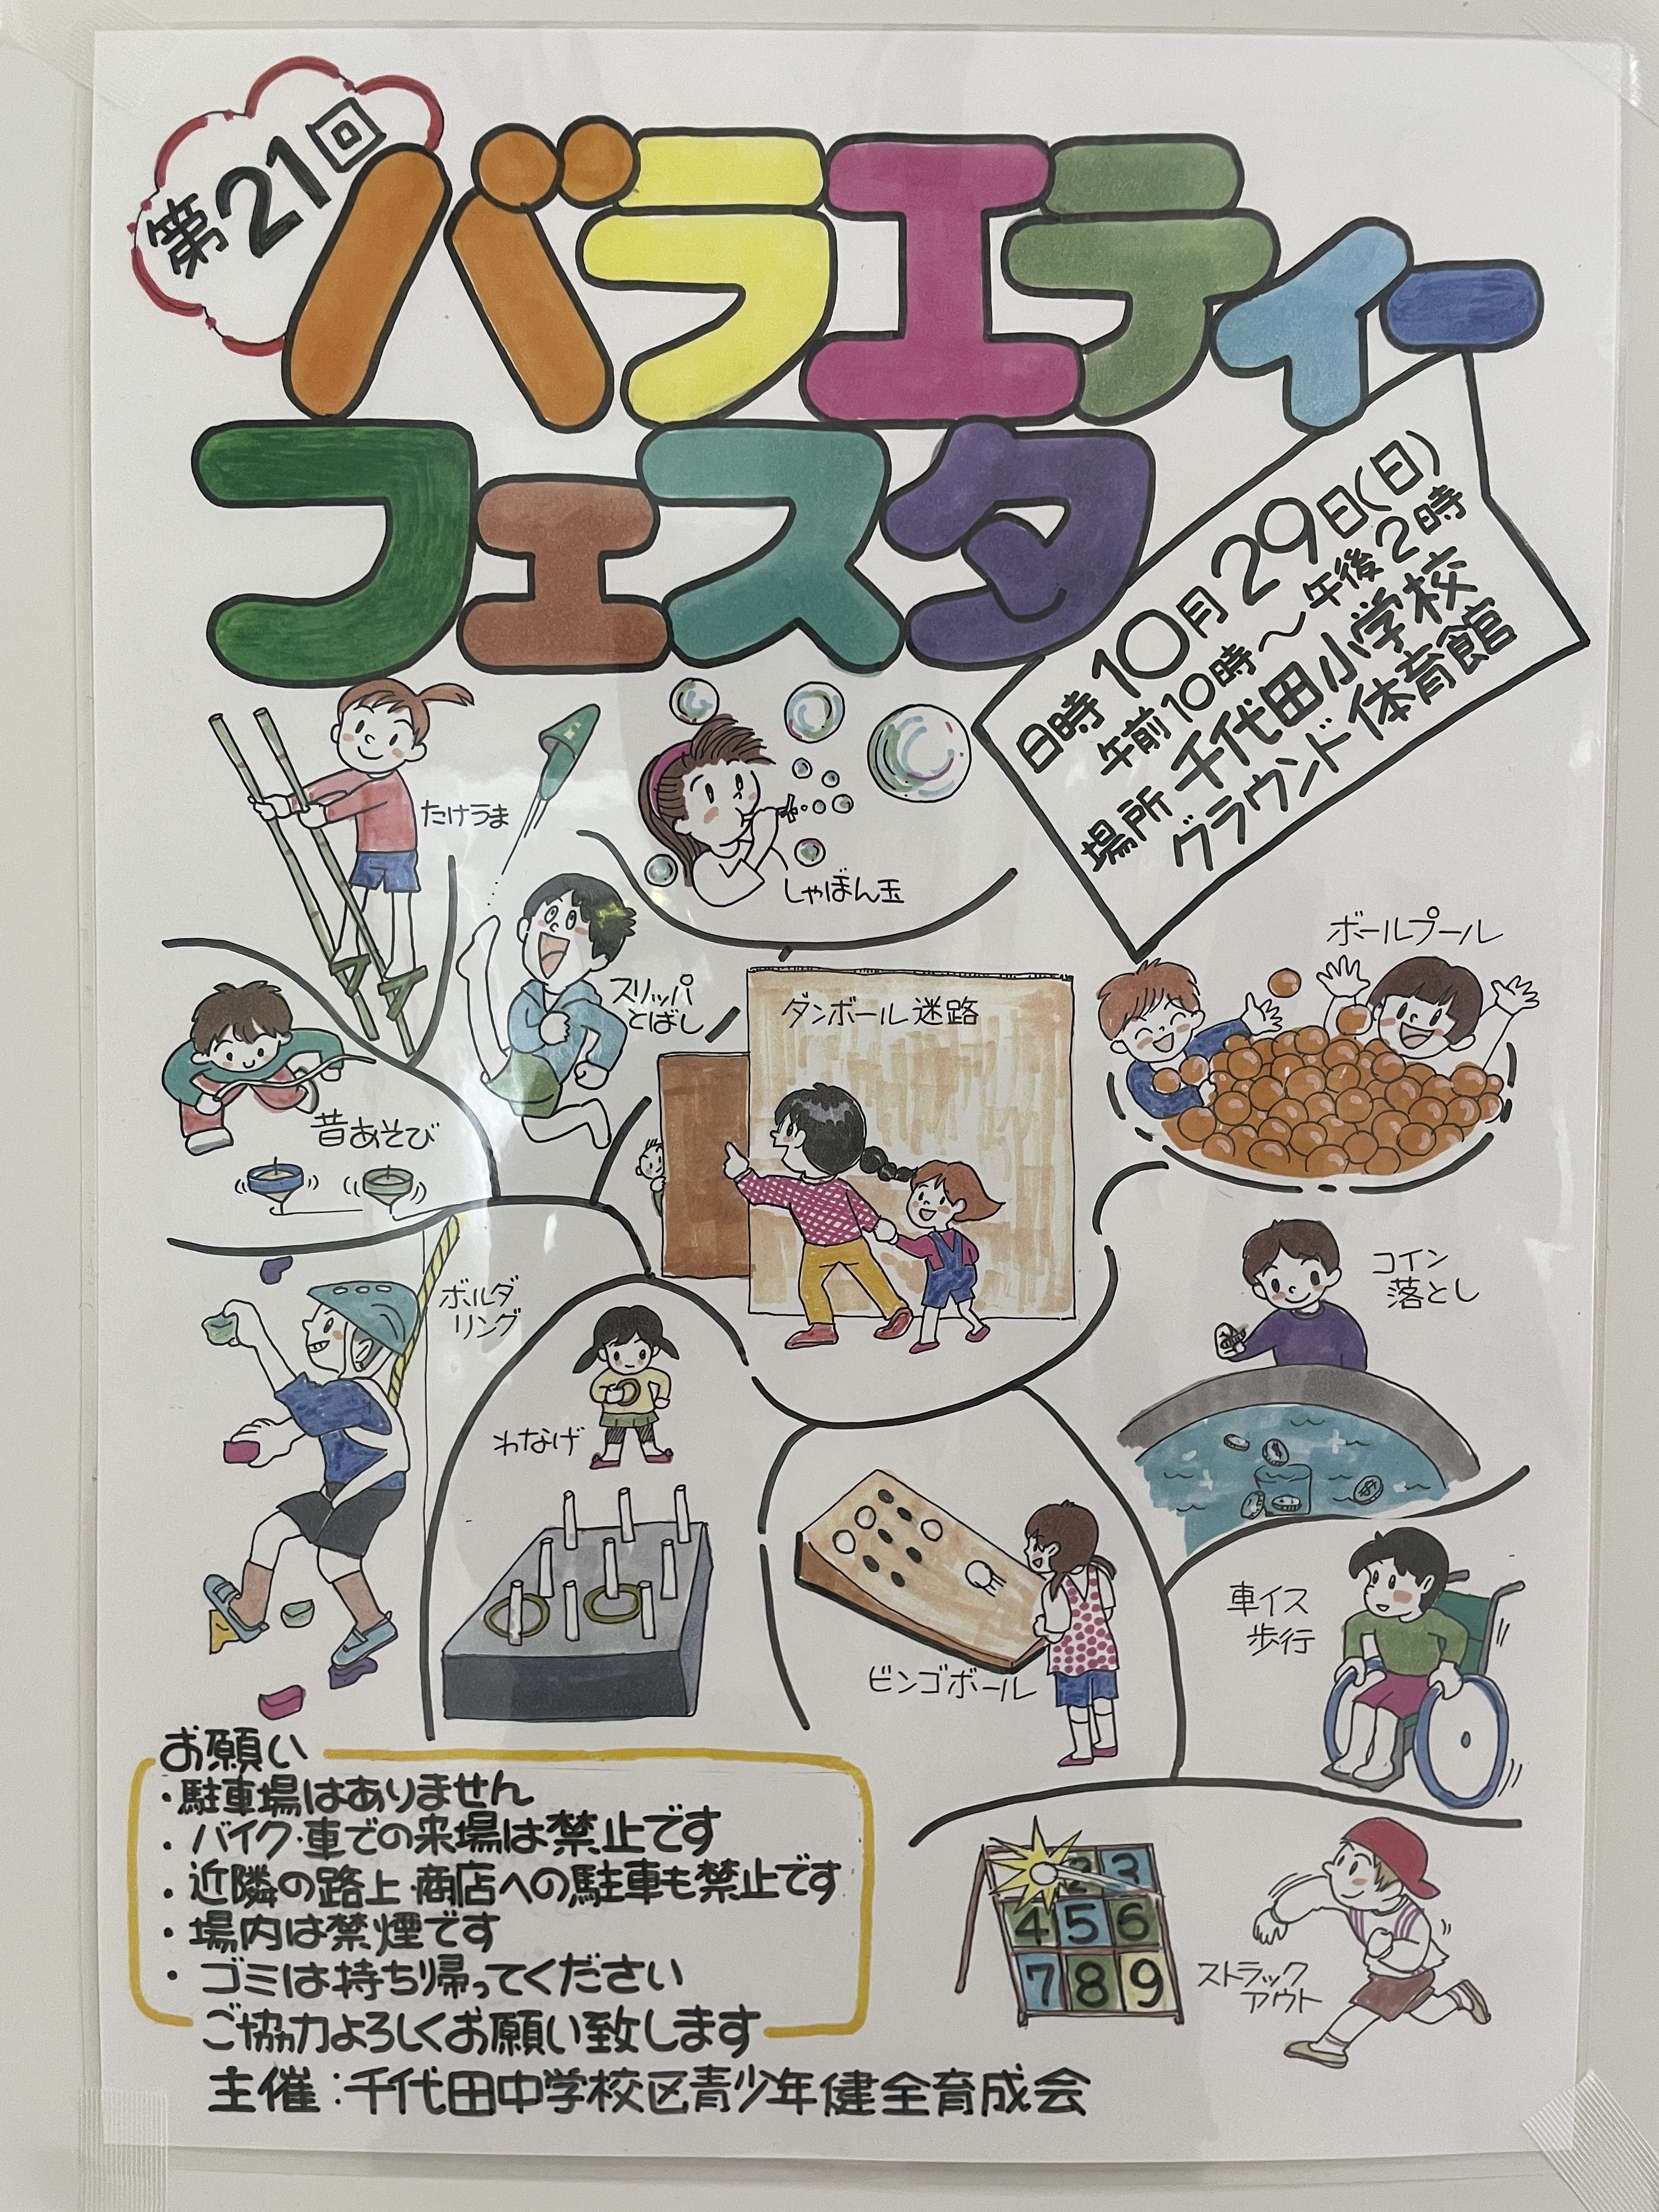 第21回
バラエティー
フェスタ
日時 10月29日(日)
午前10時〜午後2時
場所 千代田小学校
グラウンド 体育館
たけうま
しゃぼん玉
スリッパ
とばし
ボールプール
ダンボール迷路
昔あそび
ボルダ
リング
コイン
落とし
わなげ
ビンゴボール
車イス
歩行
お願い
・駐車場はありません
・バイク・車での来場は禁止です
・近隣の路上・商店への駐車も禁止です
・場内は禁煙です
・ゴミは持ち帰ってください
ご協力よろしくお願い致します
2 3
4 5 6
7 8 9
ストラック
アウト
主催:千代田中学校区青少年健全育成会